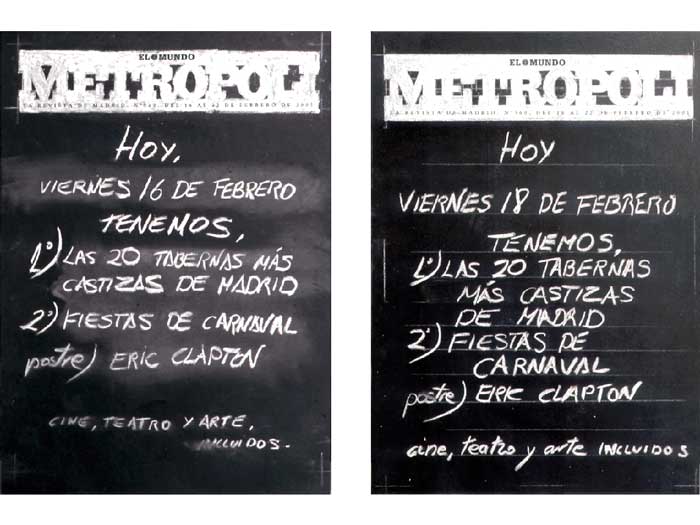 EL MUNDO
METROPOLI
LA REVISTA DE MADRID.
DEL 16 AL 22 DE FEBRERO DE 2001
HOY,
VIERNES 16 DE FEBRERO
TENEMOS,
1º) LAS 20 TABERNAS MÁS
CASTIZAS DE MADRID
2º) FIESTAS DE CARNAVAL
postre) ERIC CLAPTON
CINE, TEATRO Y ARTE,
INCLUIDOS.
EL MUNDO
METROPOLI
LA REVISTA DE MADRID.
HOY
VIERNES 18 DE FEBRERO
TENEMOS,
1º) LAS 20 TABERNAS
MÁS CASTIZAS
DE MADRID
2º) FIESTAS DE
CARNAVAL
postre) ERIC CLAPTON
cine, teatro y arte INCLUIDOS